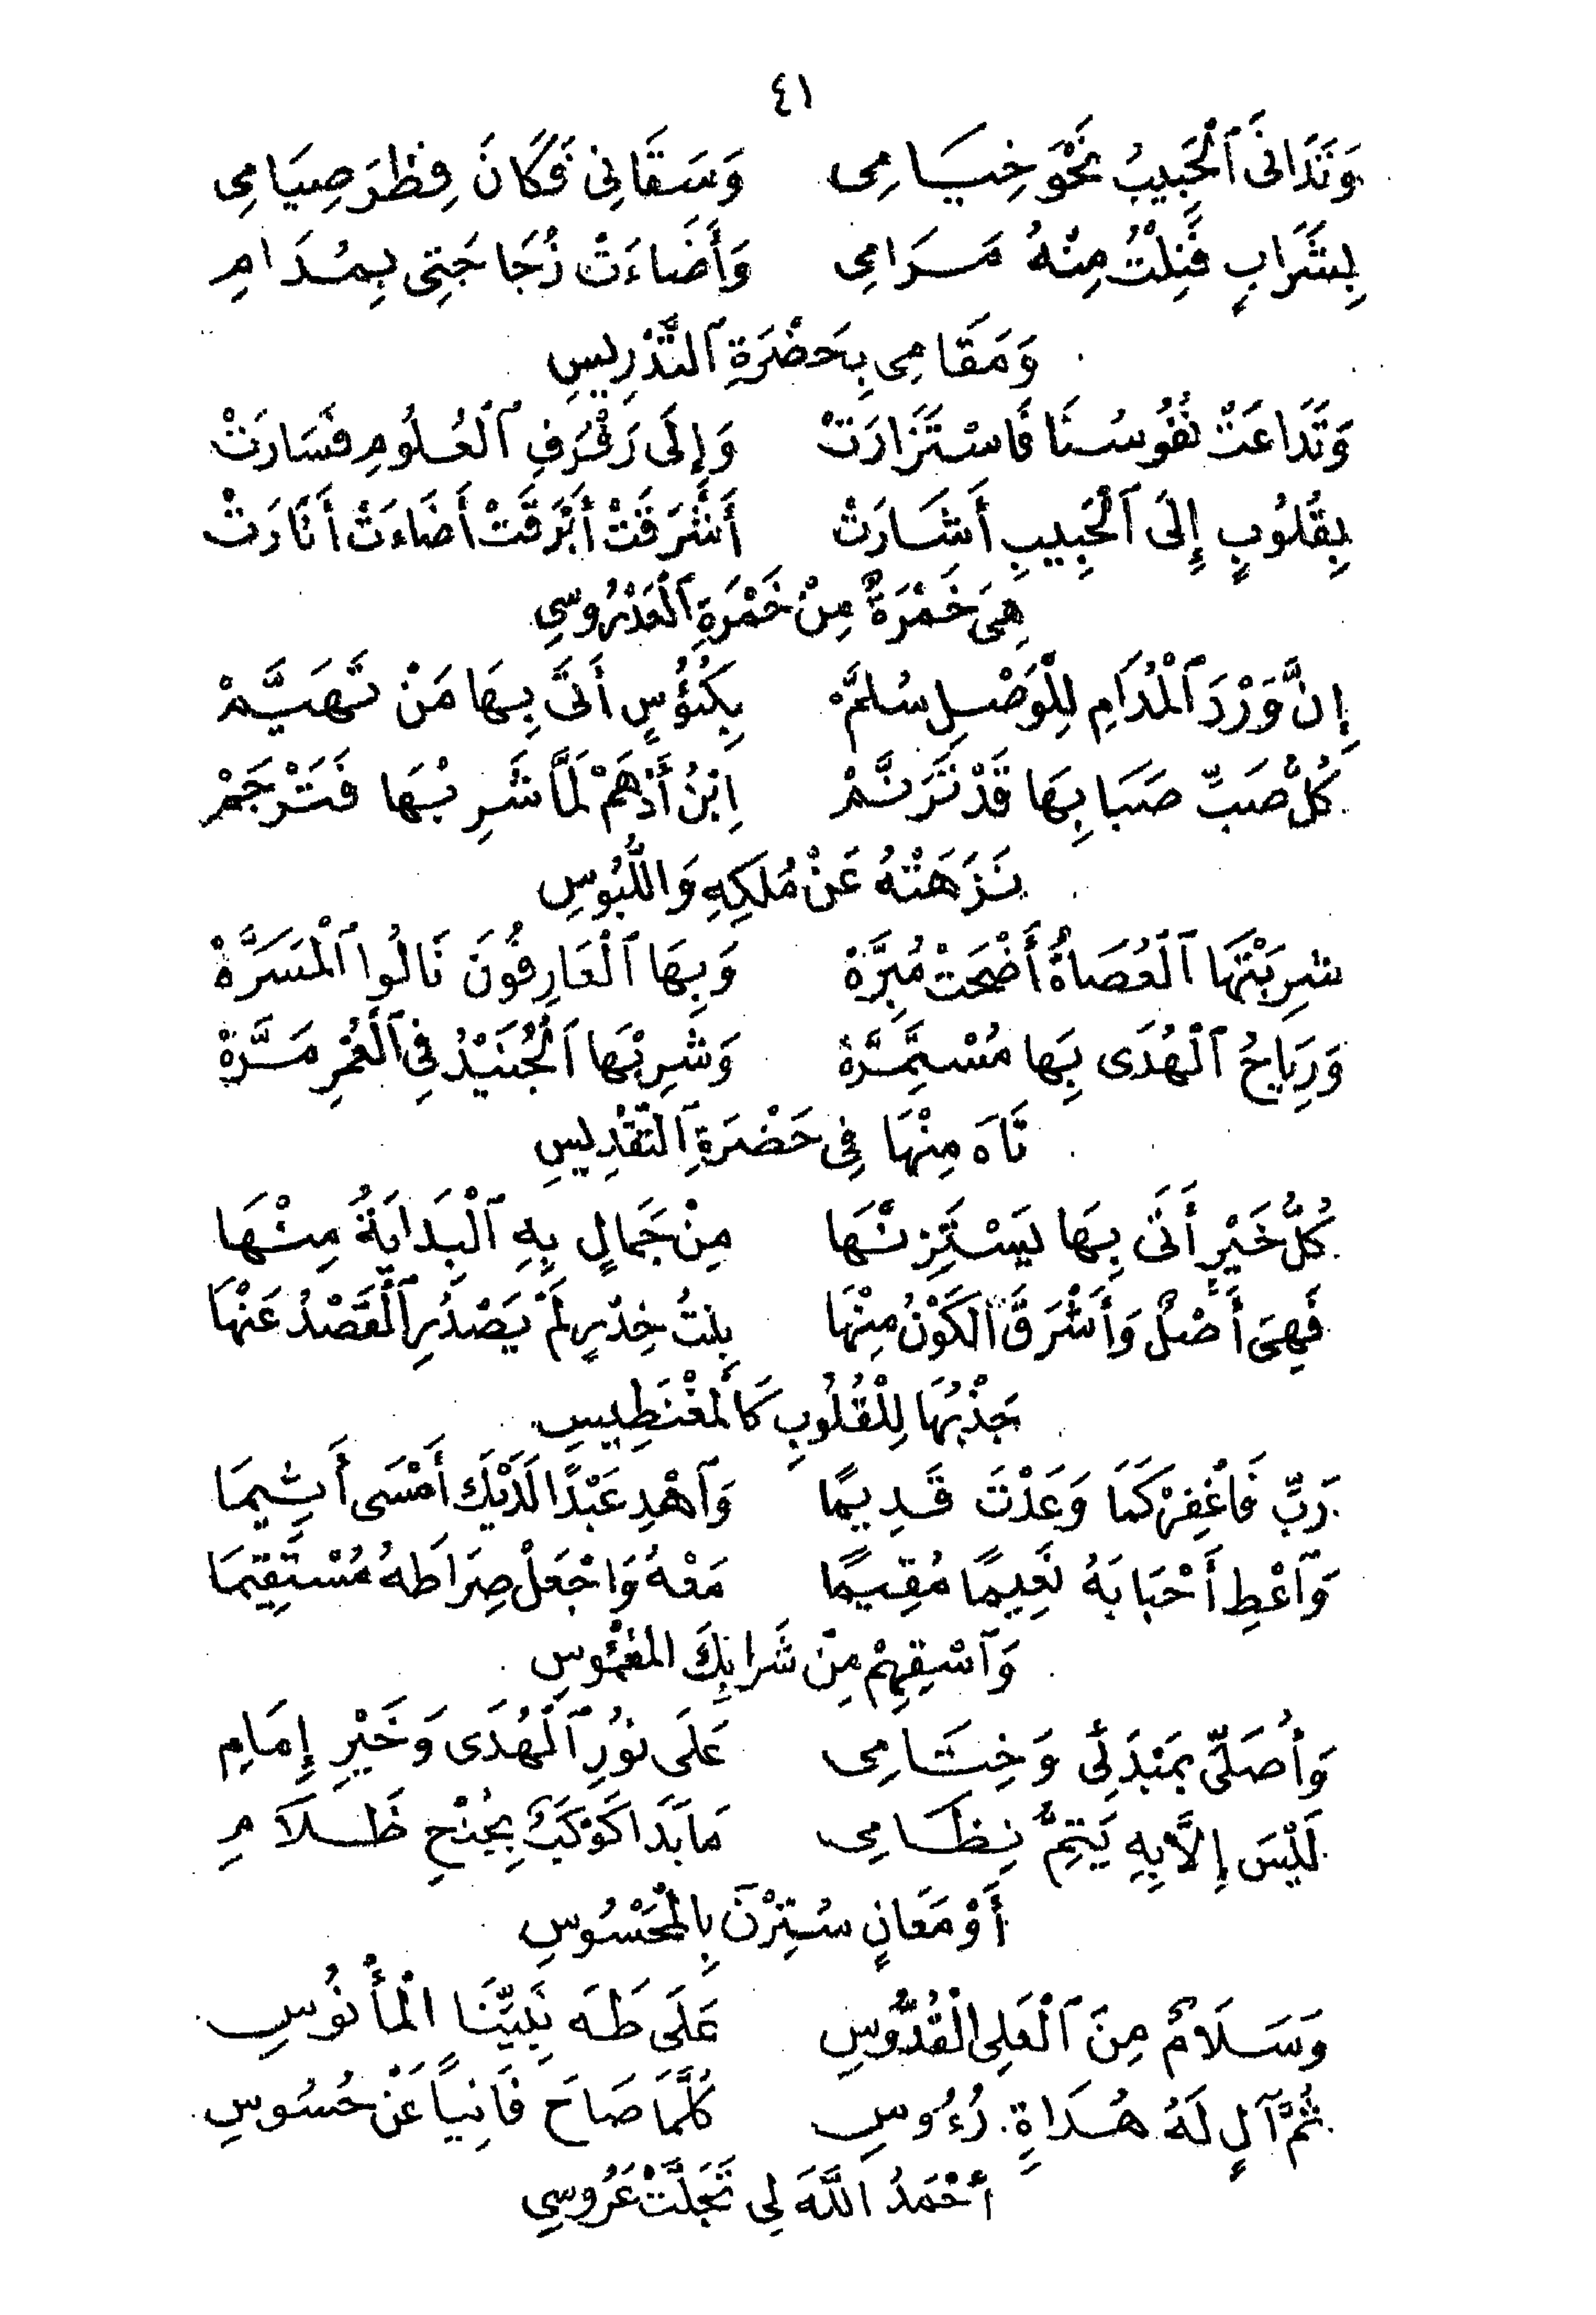 ٤١
وَتَدَانَى ٱلْحَبِيبُ نَحْوَ خِيَامِى وَسَقَانِى فَكَانَ فِطْرَ صِيَامِى
بِشَرَابٍ فَنِلْتُ مِنْهُ مَرَامِى وَأَضَاءَتْ زُجَاجَتِى بِمُدَامِ
وَمَقَامِى بِحَضْرَةِ ٱلتَّدْرِيسِ
وَتَدَاعَتْ نُفُوسُنَا فَاسْتَزَارَتْ وَإِلَى رَفْرَفِ ٱلْعُلُومِ فَسَارَتْ
بِقُلُوبٍ إِلَى ٱلْحَبِيبِ أَشَارَتْ أَشْرَقَتْ أَبْرَقَتْ أَضَاءَتْ أَنَارَتْ
هِىَ خَمْرَةٌ مِنْ خَمْرَةِ ٱلْعَدْرُوسِى
إِنَّ وَرْدَ ٱلْمُدَامِ لِلْوَصْلِ سُلَّمْ بِكُئُؤُسٍ أَتَى بِهَا مَنْ تَهَيَّمْ
كُلُّ صَبٍّ صَبَا بِهَا قَدْ تَرَنَّمْ اِبْنُ أَدْهَمْ لَمَّا شَرِبْهَا فَتَرْجَمْ
نَزَهَتْهُ عَنْ مُلَكِهِ وَاللَّبُوسِ
شرِبَتْهَا ٱلْعُصَاةُ أَضْحَتْ مُبِرَّةْ وَبِهَا ٱلْعَارِفُونَ نَالُوا ٱلْمَسَرَّةْ
وَرِيَاحُ ٱلْهُدَى بِهَا مُسْتَمِرَّةْ وَشرِبْهَا ٱلْجُنَيْدُ فِى ٱلْعُمْرِ مَرَّةْ
تَاهَ مِنْهَا فِى حَضْرَةِ ٱلتَّقْدِيسِ
كُلُّ خَيْرٍ أَتَى بِهَا يَسْتَزِنْهَا مِنْ جَمَالٍ بِهِ ٱلْبَدَايَةُ مِنْهَا
فَهِىَ أَصْلٌ وَأَشْرَقَ ٱلكَوْنُ مِنْهَا بِنتُ خِدْرٍ لَمْ يَصْدُرِ ٱلْقَصْدُ عَنْهَا
جَذْبُهَا لِلْقُلُوبِ كَالْمغْنَطِيسِ
رَبِّ فَاغْفِرْ كَمَا وَعَدْتَ قَدِيمًا وَٱهْدِ عَبْدًا لَدَيْكَ أَمْسَى أَثِيمَا
وَٱعْطِ أَحْبَابَهُ نَعِيمًا مُقِيمًا مَعْهُ وَاجْعَلْ صِرَاطَهُ مُسْتَقِيمَا
وَٱسْقِهِمْ مِنْ شَرَابِكَ المَغْمُوسِ
وَأُصَلِّى بِمَبْدَئِى وَخِتَامِى عَلَى نُورِ ٱلْهُدَى وَخَيْرِ إِمَامِ
لَيْسَ إِلَّا بِهِ يَتِمُّ نِظَامِى مَا بَدَا كَوْكَبٌ بِجُنْحِ ظَلَامِ
أَوْ مَعَانٍ سُتِرْنَ بِالْمَحْسُوسِ
وَسَلَامٌ مِنَ ٱلْعَلِى الْقُدُّوسِ عَلَى طَهَ نَبِيِّنَا الْمأْنُوسِ
ثُمَّ آلٍ لَهُ هُدَاةٍ رُءُوسِ كُلَّمَا صَاحَ فَانِيًا عَنْ حُسُوسِ
أَحْمَدُ اللَّهَ لِى تَجَلَّتْ عَرُوسِى